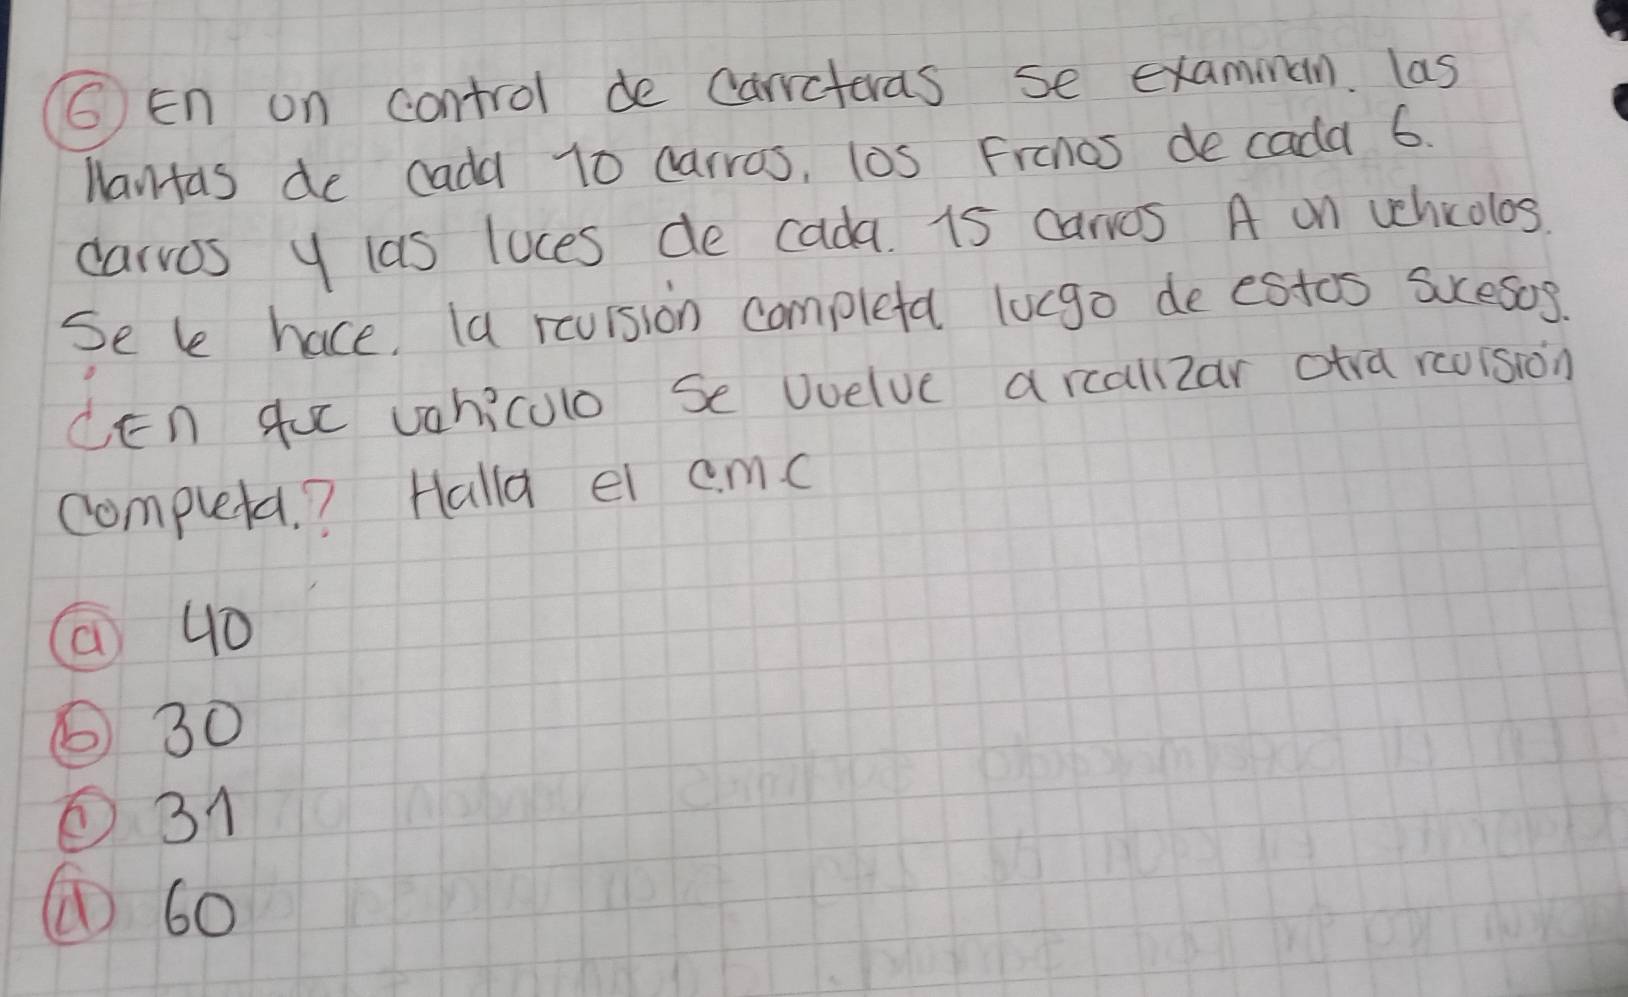 6 En un control de carreteras se examinan. las
llantas de cada 10 carros, los Frenos de cada 6.
carros y las luces de cada. 15 carros A un vehicolos.
Se le hace. la reuisión completa luego de estos sucesos.
¿En que vahiculo se vuelve a realizar otra reuisión
completa.? Halla el cmc
a 40
b 30
c 31
d 60